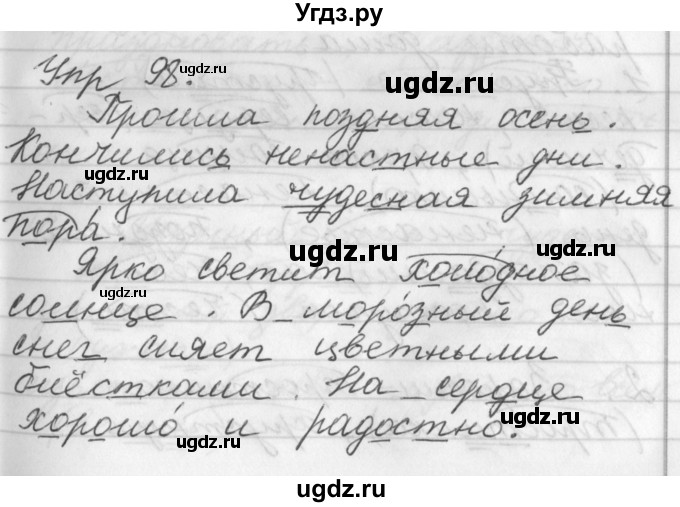 Угдз.ру
Упр 98.
Прошла поздняя осень.
Кончились ненастные дни.
Наступила чудесная зимняя
пора.
Ярко светит холодное
солнце. В морозный день
снег сияет цветными
блёстками. На сердце
хорошо и радостно.
ugdz.ru
ugdz.ru
ugdz.ru
ugdz.ru
ugdz.ru
ugdz.ru
ugdz.ru
ugdz.ru